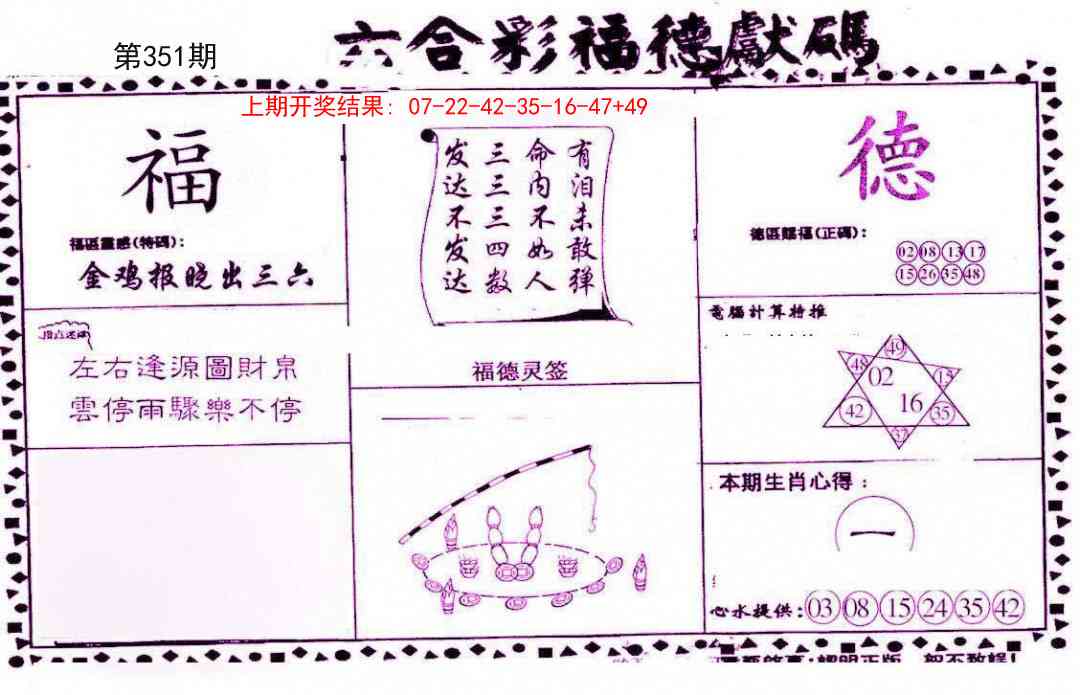 六合彩福德獻碼
第351期
上期开奖结果: 07-22-42-35-16-47+49
福
福區靈感(特碼):
金鸡报晓出三六
有泪未敢弹
命内不如人
三三三四数
发达不发达
德
德區賜福(正碼):
02 08 13 17
15 26 35 48
左右逢源圖財帛
雲停雨驟樂不停
福德灵签
電腦計算特推
49
48 02 15
42 16 35
37
本期生肖心得:
一
心水提供:03 08 15 24 35 42